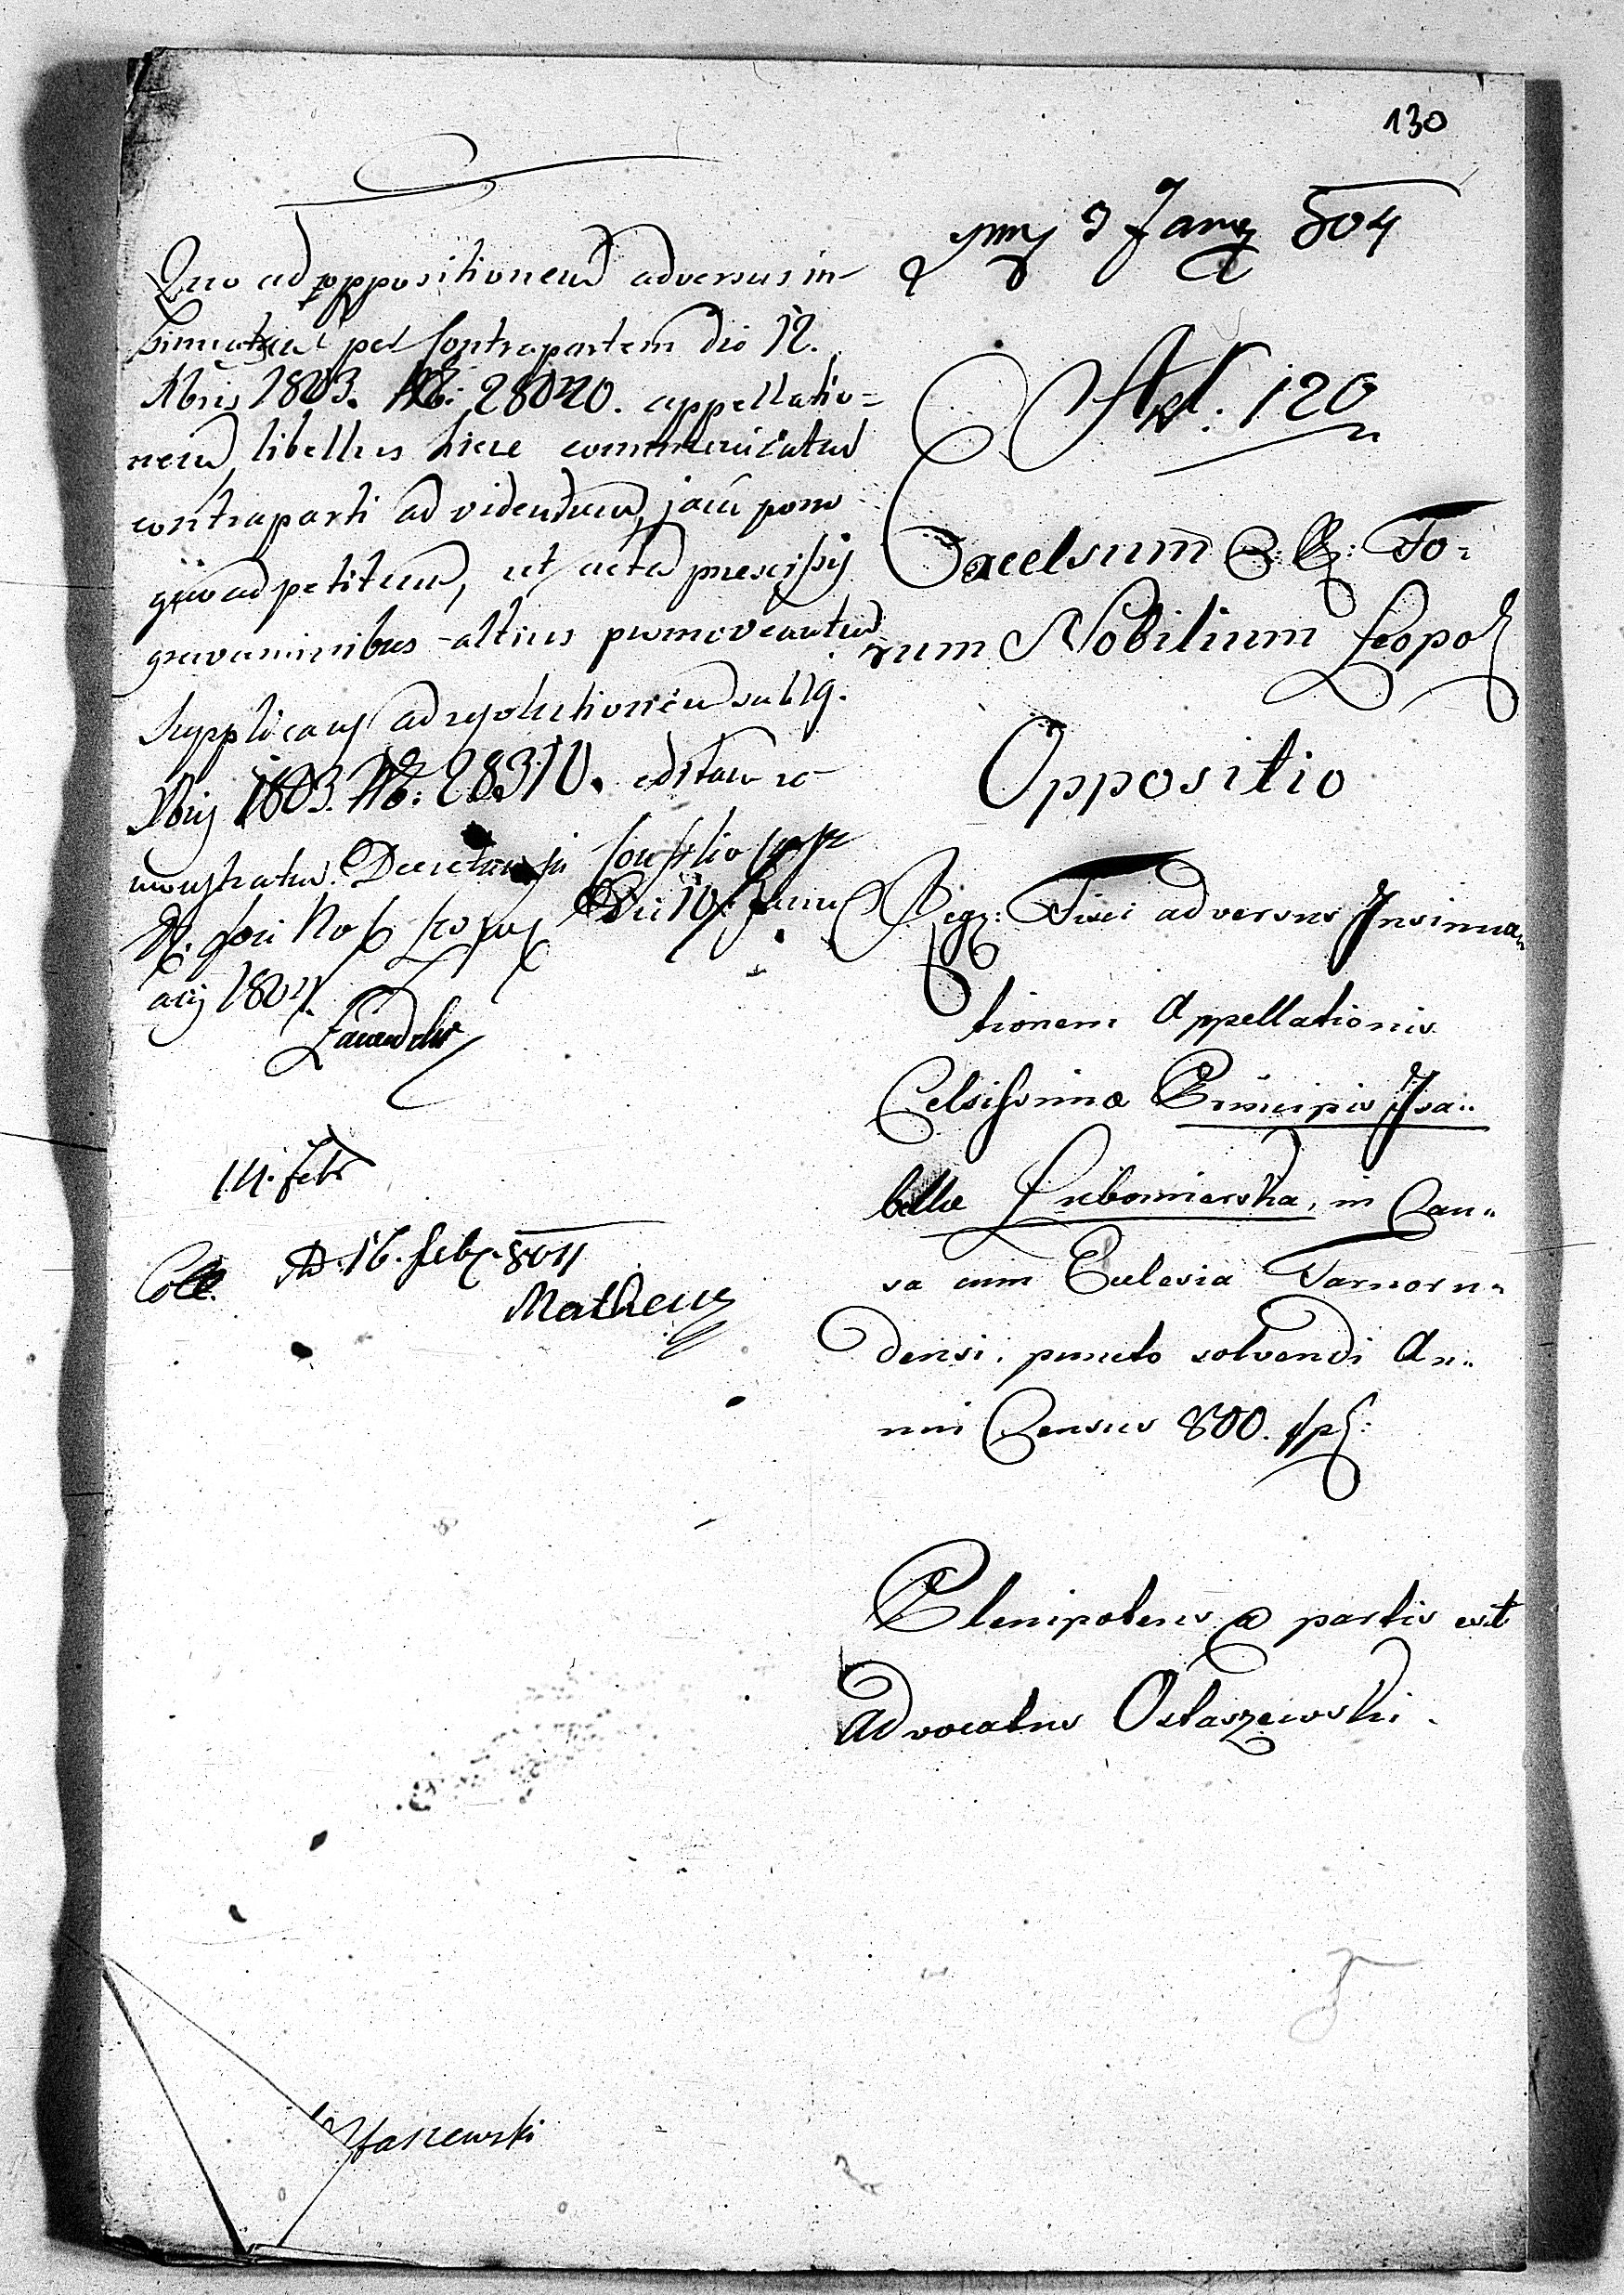 130
Quo ad oppositionem adversus in-
sinuatam per Contrapartem die 12.
Xbris 1803. No: 28020. appellatio=
nem, libellus hicce communicatur
contraparti ad videndum, jam porro
quoad petitum, ut acta
gravaminibus altius promoveantur
Supplicans ad resolutionem sub 19.
Xbris 1803. No: 28310. editam re-
monstratur. Decretum in Consilio
Fori Nob Leopol Die 10. Janu
arij 1804.
14. Febr
Coll. 16. Febr. 804
Matheus
9 Janu 804
Nr. 120
Excelsum C: R: Fo-
rum Nobilium Leopol
Oppositio
Reg: Fisci adversus Insinua„
tionem Appellationis
Celsissimæ Principis Isa„
bellæ Lubomierska, in Cau„
sa cum Ecclesia Tarnorn„
densi. puncto solvendi An„
nui Census 800. fpl:
Plenipotens a partis est
Advocatus Ostaszewski.
Ostaszewski